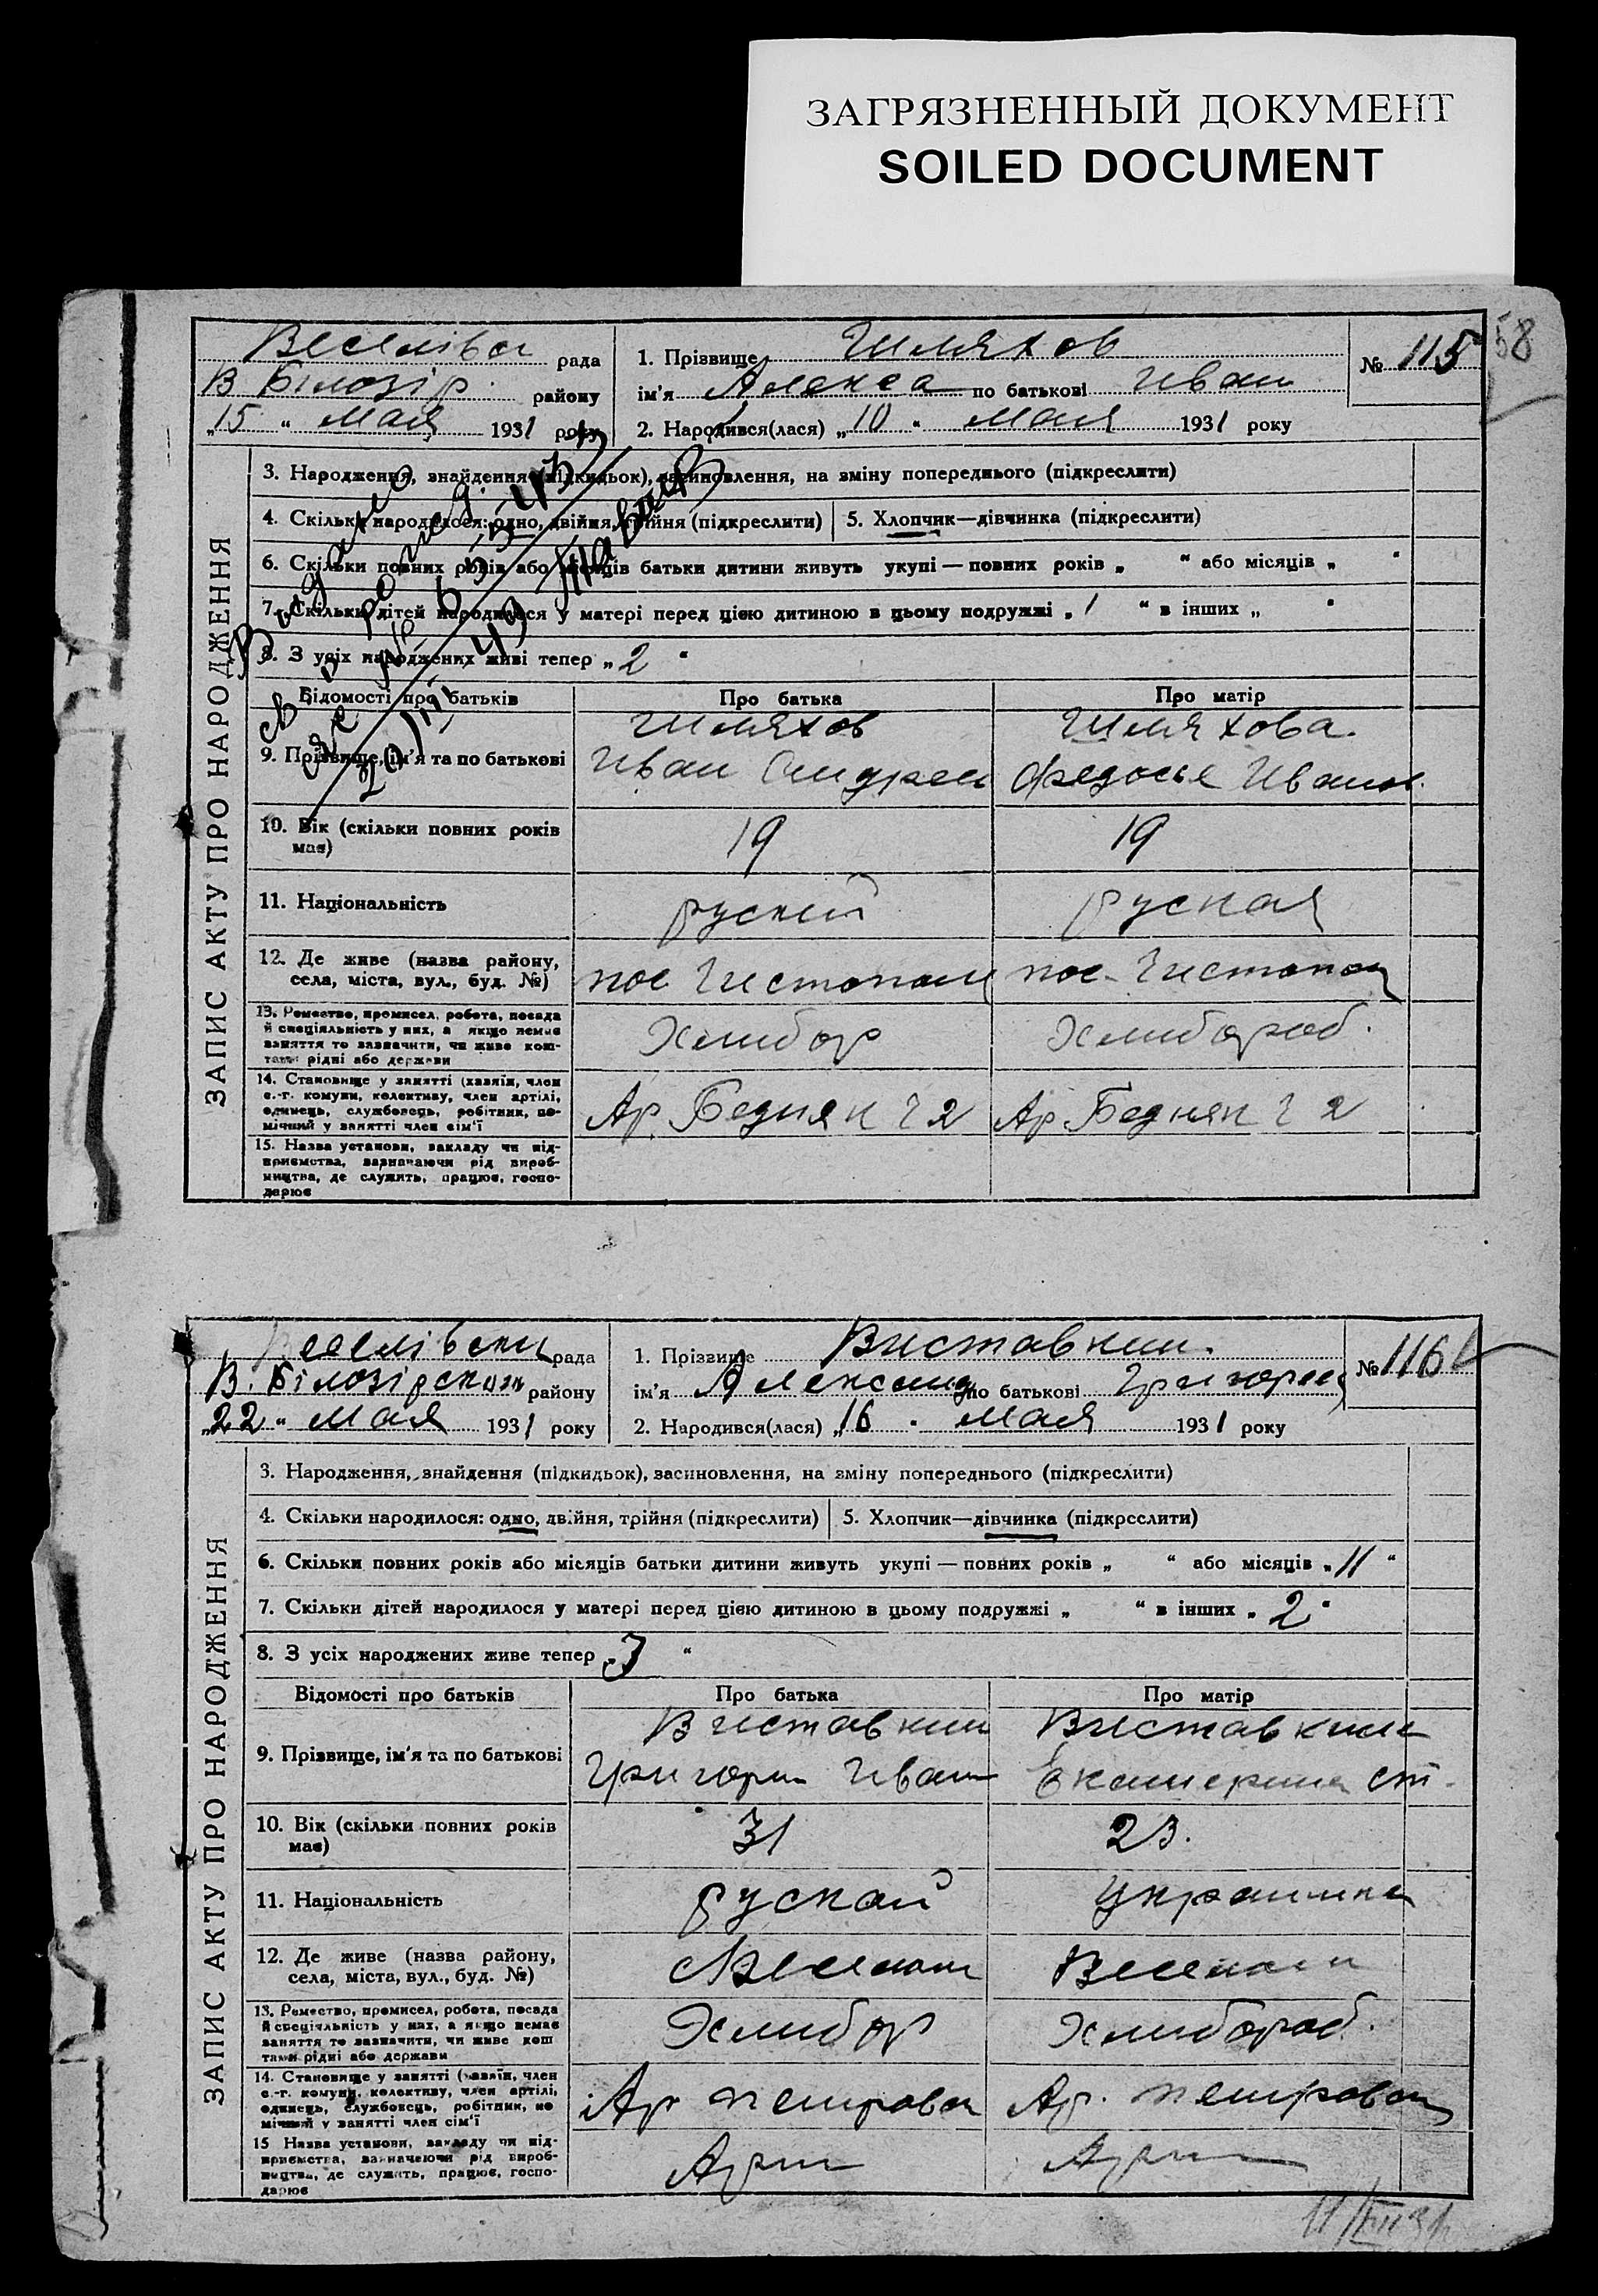 ЗАГРЯЗНЕННЫЙ ДОКУМЕНТ
SOILED DOCUMENT
58
Веселівск рада
В Білозір. району
„15 “ мая 1931 року
1. Прізвище Шляхов
ім'я Алекса по батькові Иван
2. Народився(лася) „10 “ мая 1931 року
№ 115
ЗАПИС АКТУ ПРО НАРОДЖЕННЯ
3. Народження, знайдення (підкидьок), засиновлення, на зміну попереднього (підкреслити)
4. Скільки народилося: одно, двійня, трійня (підкреслити) 5. Хлопчик—дівчинка (підкреслити)
6. Скільки повних років або місяців батьки дитини живуть укупі — повних років „ “ або місяців „ “
7. Скільки дітей народилося у матері перед цією дитиною в цьому подружжі „ 1 “ в інших „ “
8. З усіх народжених живі тепер „ 2 “
Відомості про батьків Про батька Про матір
9. Прізвище, ім'я та по батькові
Шляхов Шляхова.
Иван Андреи Федосья Иванов.
10. Вік (скільки повних років має) 19 19
11. Національність руский руская
12. Де живе (назва району,
села, міста, вул., буд. №) пос Чистопол пос. Чистопол
13. Ремество, промисел, робота, посада
й спеціяльність у них, а якщо немає
заняття то зазначити, чи живе кош-
тами рідні або держави
Хлибор Хлибороб.
14. Становище у занятті (хазяїн, член
с.-г. комуни, колективу, член артілі,
одинець, службовець, робітник, по-
мічний у занятті член сім'ї
Ар. Бедняк ч 2 Ар. Бедняк ч 2
15. Назва установи, закладу чи під-
приємства, зазначаючи рід вироб-
ництва, де служить, працює, госпо-
дарює
Веселівски рада
В. Білозірского району
„22 “ мая 1931 року
1. Прізвище Виставкин.
ім'я Александ по батькові Григорев
2. Народився(лася) „16 “ мая 1931 року
№ 116
ЗАПИС АКТУ ПРО НАРОДЖЕННЯ
3. Народження, знайдення (підкидьок), засиновлення, на зміну попереднього (підкреслити)
4. Скільки народилося: одно, двійня, трійня (підкреслити) 5. Хлопчик—дівчинка (підкреслити)
6. Скільки повних років або місяців батьки дитини живуть укупі — повних років „ “ або місяців „ 11 “
7. Скільки дітей народилося у матері перед цією дитиною в цьому подружжі „ “ в інших „ 2 “
8. З усіх народжених живе тепер „ 3 “
Відомості про батьків Про батька Про матір
9. Прізвище, ім'я та по батькові
Виставкин Виставкин
Григори Иван Екатерина Ст.
10. Вік (скільки повних років має) 31 23.
11. Національність руской Украинка
12. Де живе (назва району,
села, міста, вул., буд. №)
13. Ремество, промисел, робота, посада
й спеціяльність у них, а якщо немає
заняття то зазначити, чи живе кош
тами рідні або держави
Хлибор Хлибороб.
14. Становище у занятті (хазяїн, член
с.-г. комуни, колективу, член артілі,
одинець, службовець, робітник, по
мічний у занятті член сім'ї
Ар Петровск Ар. Петровск
15 Назва установи, закладу чи під-
приємства, зазначаючи рід вироб-
ництва, де служить, працює, госпо-
дарює
Арт Арт